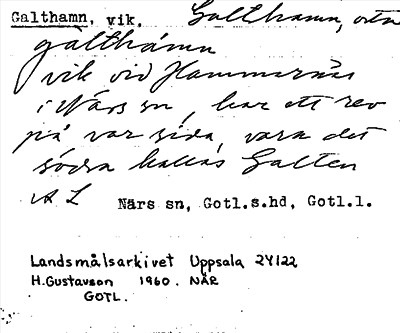 Galthamn, vik. Galthamn, uta
galthámn
vik vid Hammarnäs
i Närs sn, har ett rev
på var sida, vara det
södra kallas Galten
A L Närs sn, Gotl.s.hd, Gotl.l.
Landsmålsarkivet Uppsala 24122
H. Gustavson 1960. NÄR
GOTL.